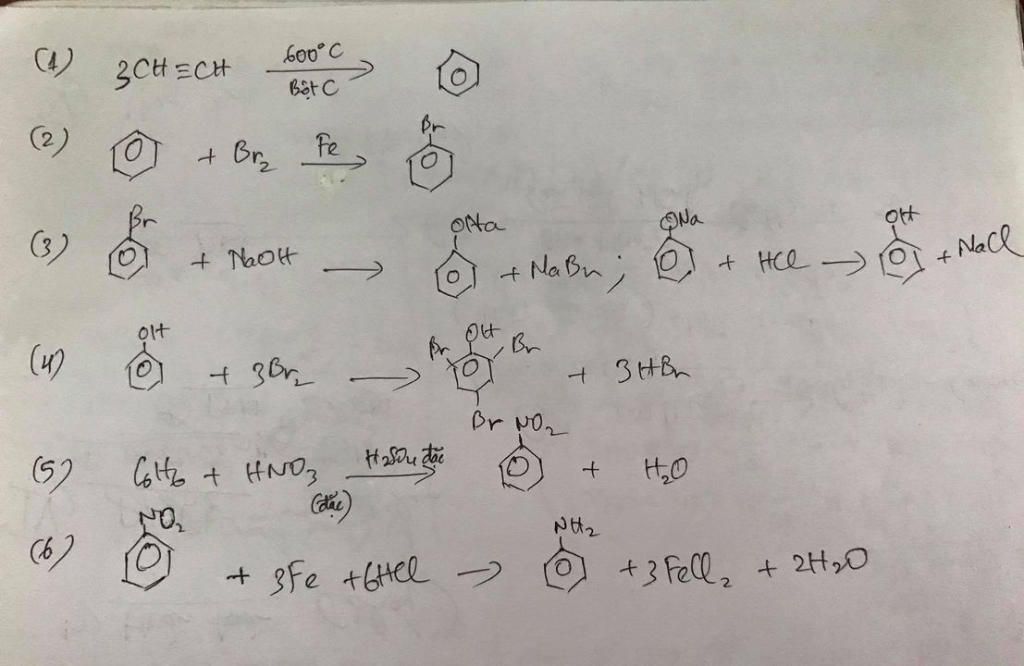 (1) 3CH≡CH 600°C Bột C
(2) + Br₂ Fe Br
(3) Br + NaOH → ONa + NaBr ; ONa + HCl → OH + NaCl
(4) OH + 3Br₂ → Br OH Br Br + 3HBr
(5) C₆H₆ + HNO₃ (đặc) H₂SO₄ đặc NO₂ + H₂O
(6) NO₂ + 3Fe + 6HCl → NH₂ + 3FeCl₂ + 2H₂O